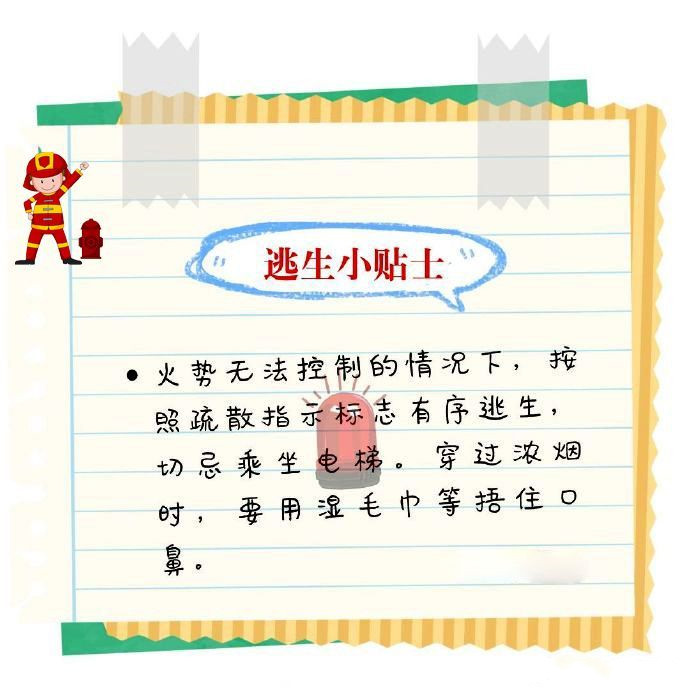 逃生小贴士
• 火势无法控制的情况下，按
照疏散指示标志有序逃生，
切忌乘坐电梯。穿过浓烟
时，要用湿毛巾等捂住口
鼻。